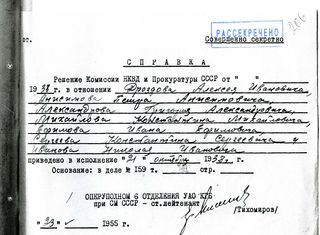 206
РАССЕКРЕЧЕНО
ст. Совершенно секретно
СПРАВКА
Решение Комиссии НКВД и Прокуратуры СССР от " "
1938 г. в отношении Фроздова Алексея Ивановича,
Анисимова Петра Анисимовича,
Александрова Григория Александровича,
Михайлова Константина Михайловича,
Ефимова Ивана Ефимовича,
Сергеева Константина Сергеевича и
Иванова Николая Ивановича
приведено в исполнение "21" октября 1938 г.
Основание: в деле № 159 т. л.
ОПЕРУПОЛНОМ 6 ОТДЕЛЕНИЯ УАО КГБ
при СМ СССР - ст. лейтенант
/Тихомиров/
"23" 1955 г.